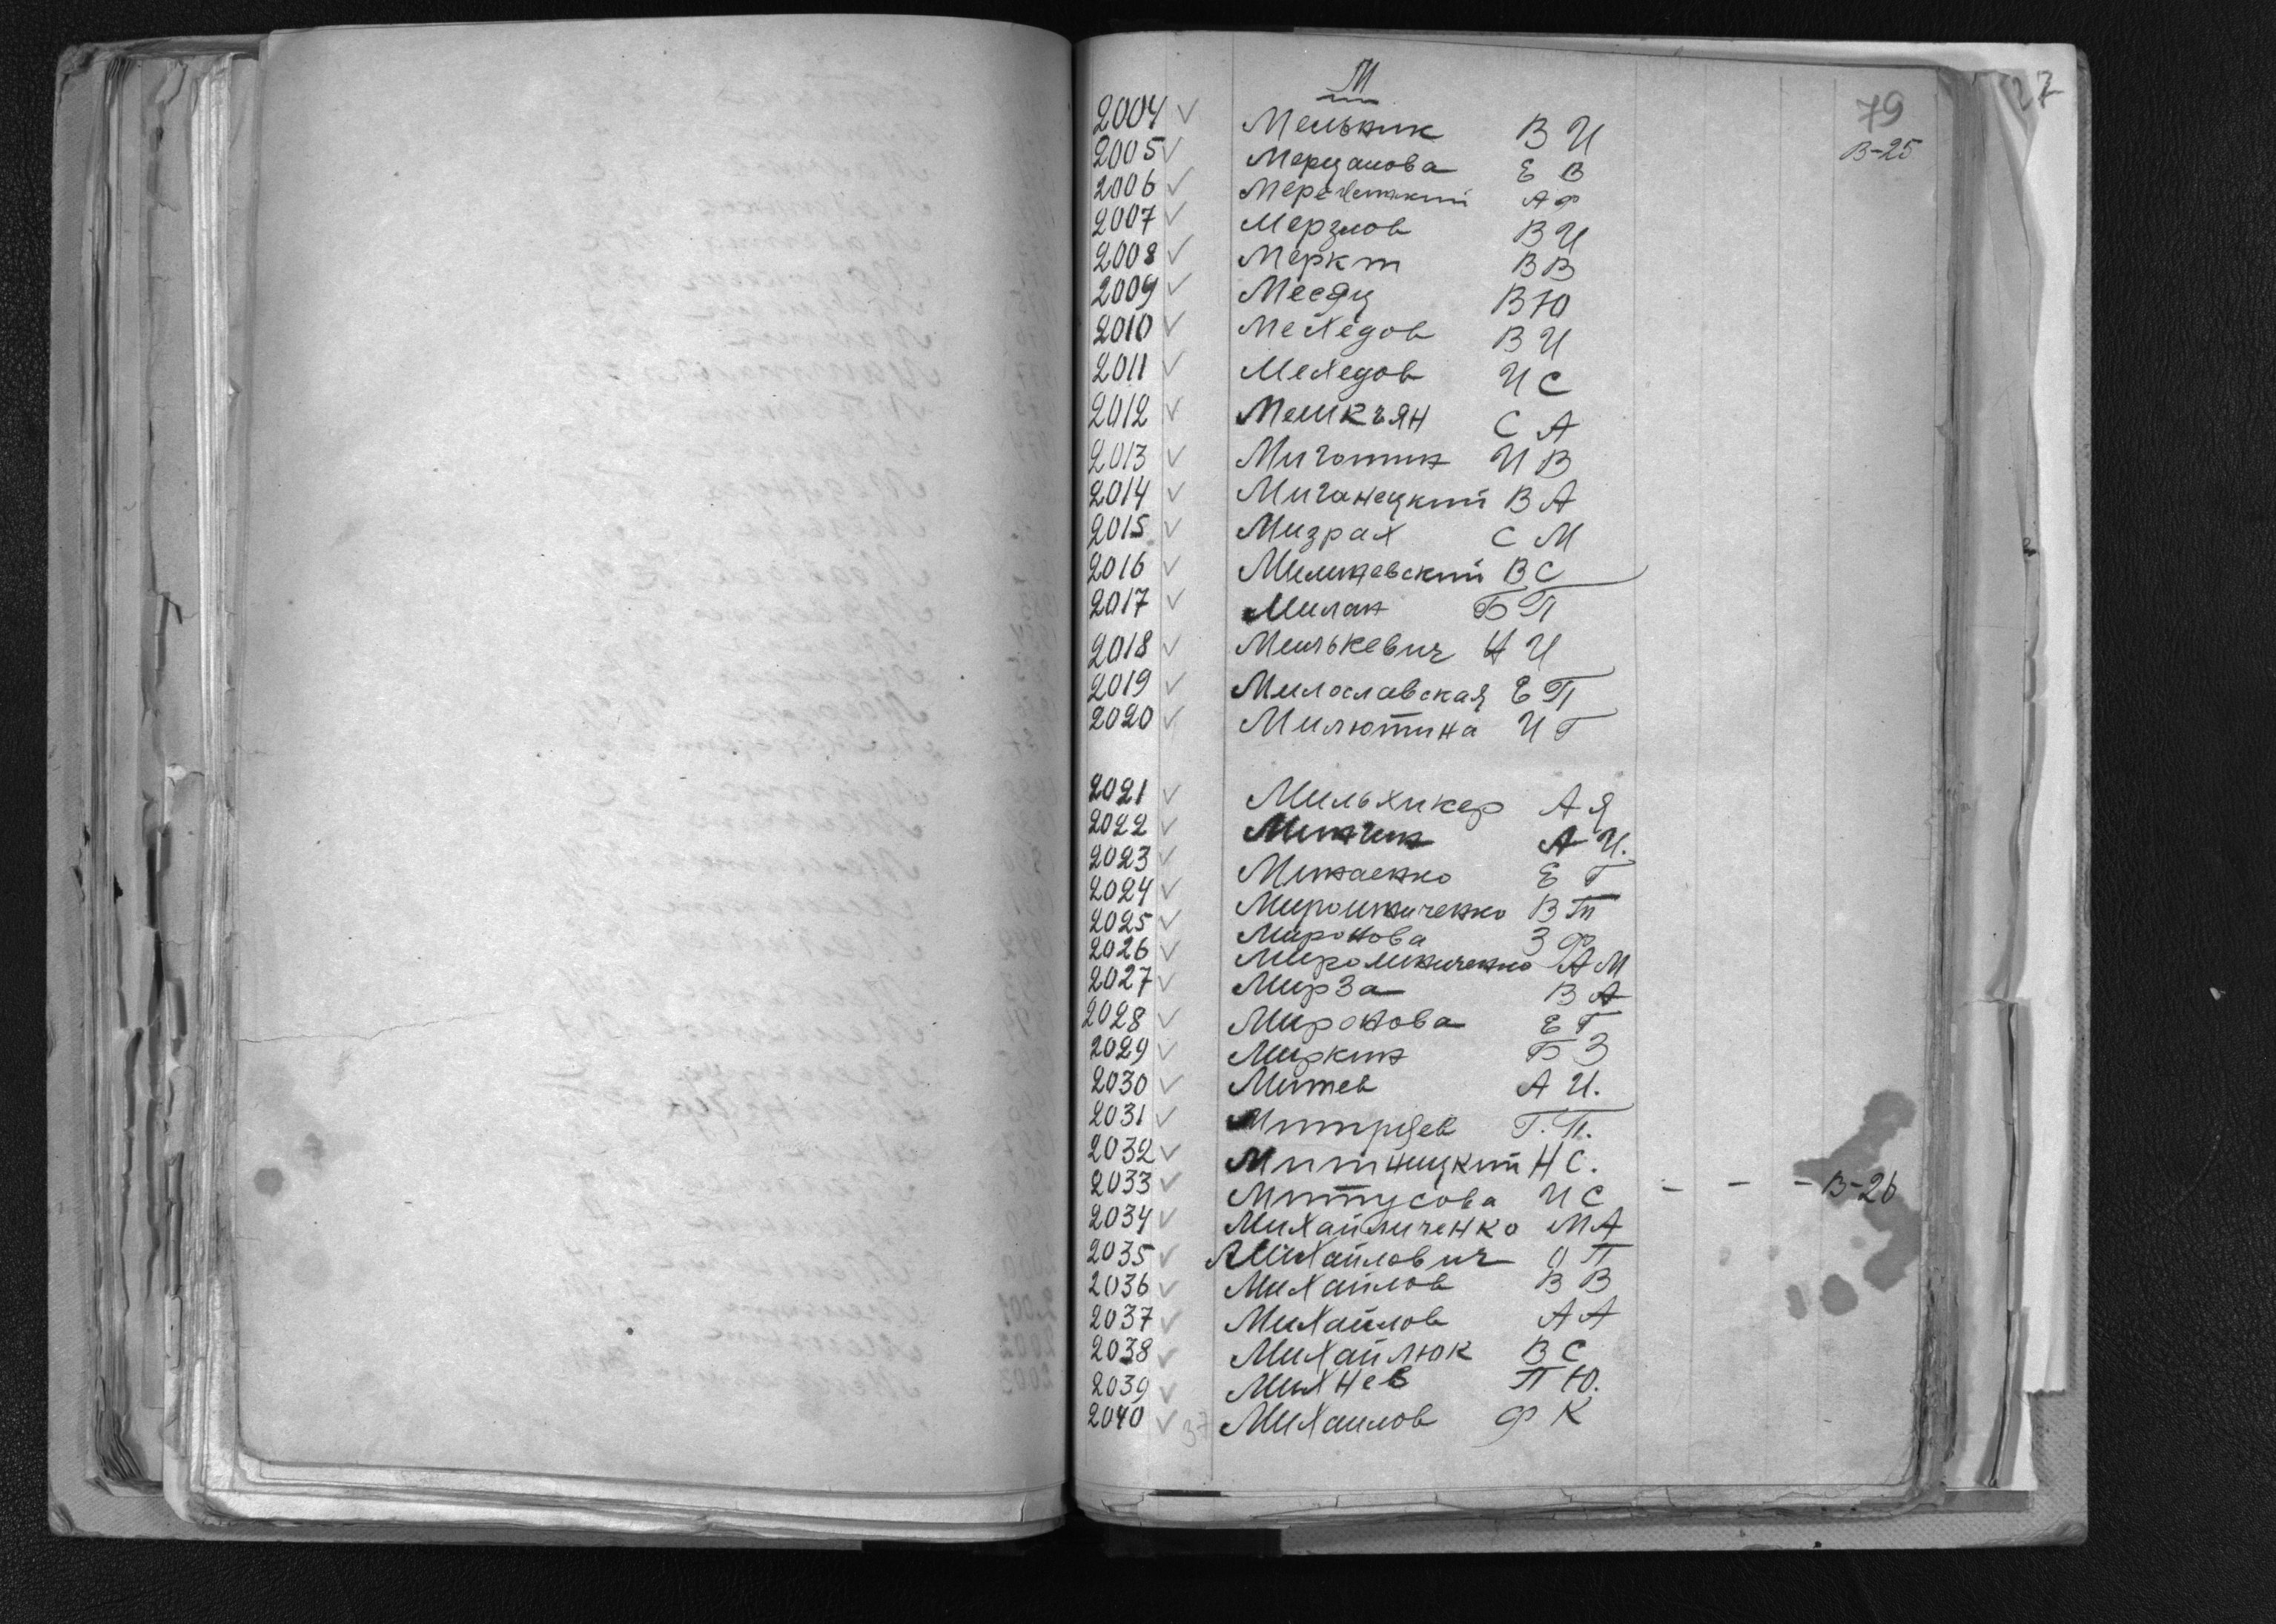 27
79
В-25
М
2004 ✓ Мельник В И
2005 ✓ Мерцалова Е В
2006 ✓ А Ф
2007 ✓ Мерзлов В И
2008 ✓ Меркт В В
2009 ✓ Месяц В Ю
2010 ✓ Мехедов В И
2011 ✓ Мехедов И С
2012 ✓ Мешкъян С А
2013 ✓ И В
2014 ✓ Миганецкий В А
2015 ✓ Мизрах С М
2016 ✓ Милишевский В С
2017 ✓ Милан Б П
2018 ✓ Милькевич А И
2019 ✓ Милославская Е П
2020 ✓ Милютина И Г
2021 ✓ Мильхикер А Я
2022 ✓ А И.
2023 ✓ Минаенко Е Г
2024 ✓ Мирошниченко В Т
2025 ✓ Миронова З Ф
2026 ✓ Мирошниченко А М
2027 ✓ Мирза В А
2028 ✓ Миронова Е Г
2029 ✓ Миркин Б З
2030 ✓ Митев А И.
2031 ✓ Митряев Г. П.
2032 ✓ Митницкий Н С.
2033 ✓ Митусова И С - - - В-26
2034 ✓ Михайличенко М А
2035 ✓ Михайлович О П
2036 ✓ Михайлов В В
2037 ✓ Михайлов А А
2038 ✓ Михайлюк В С
2039 ✓ Михнев П Ю.
2040 ✓ 37 Михайлов Ф К